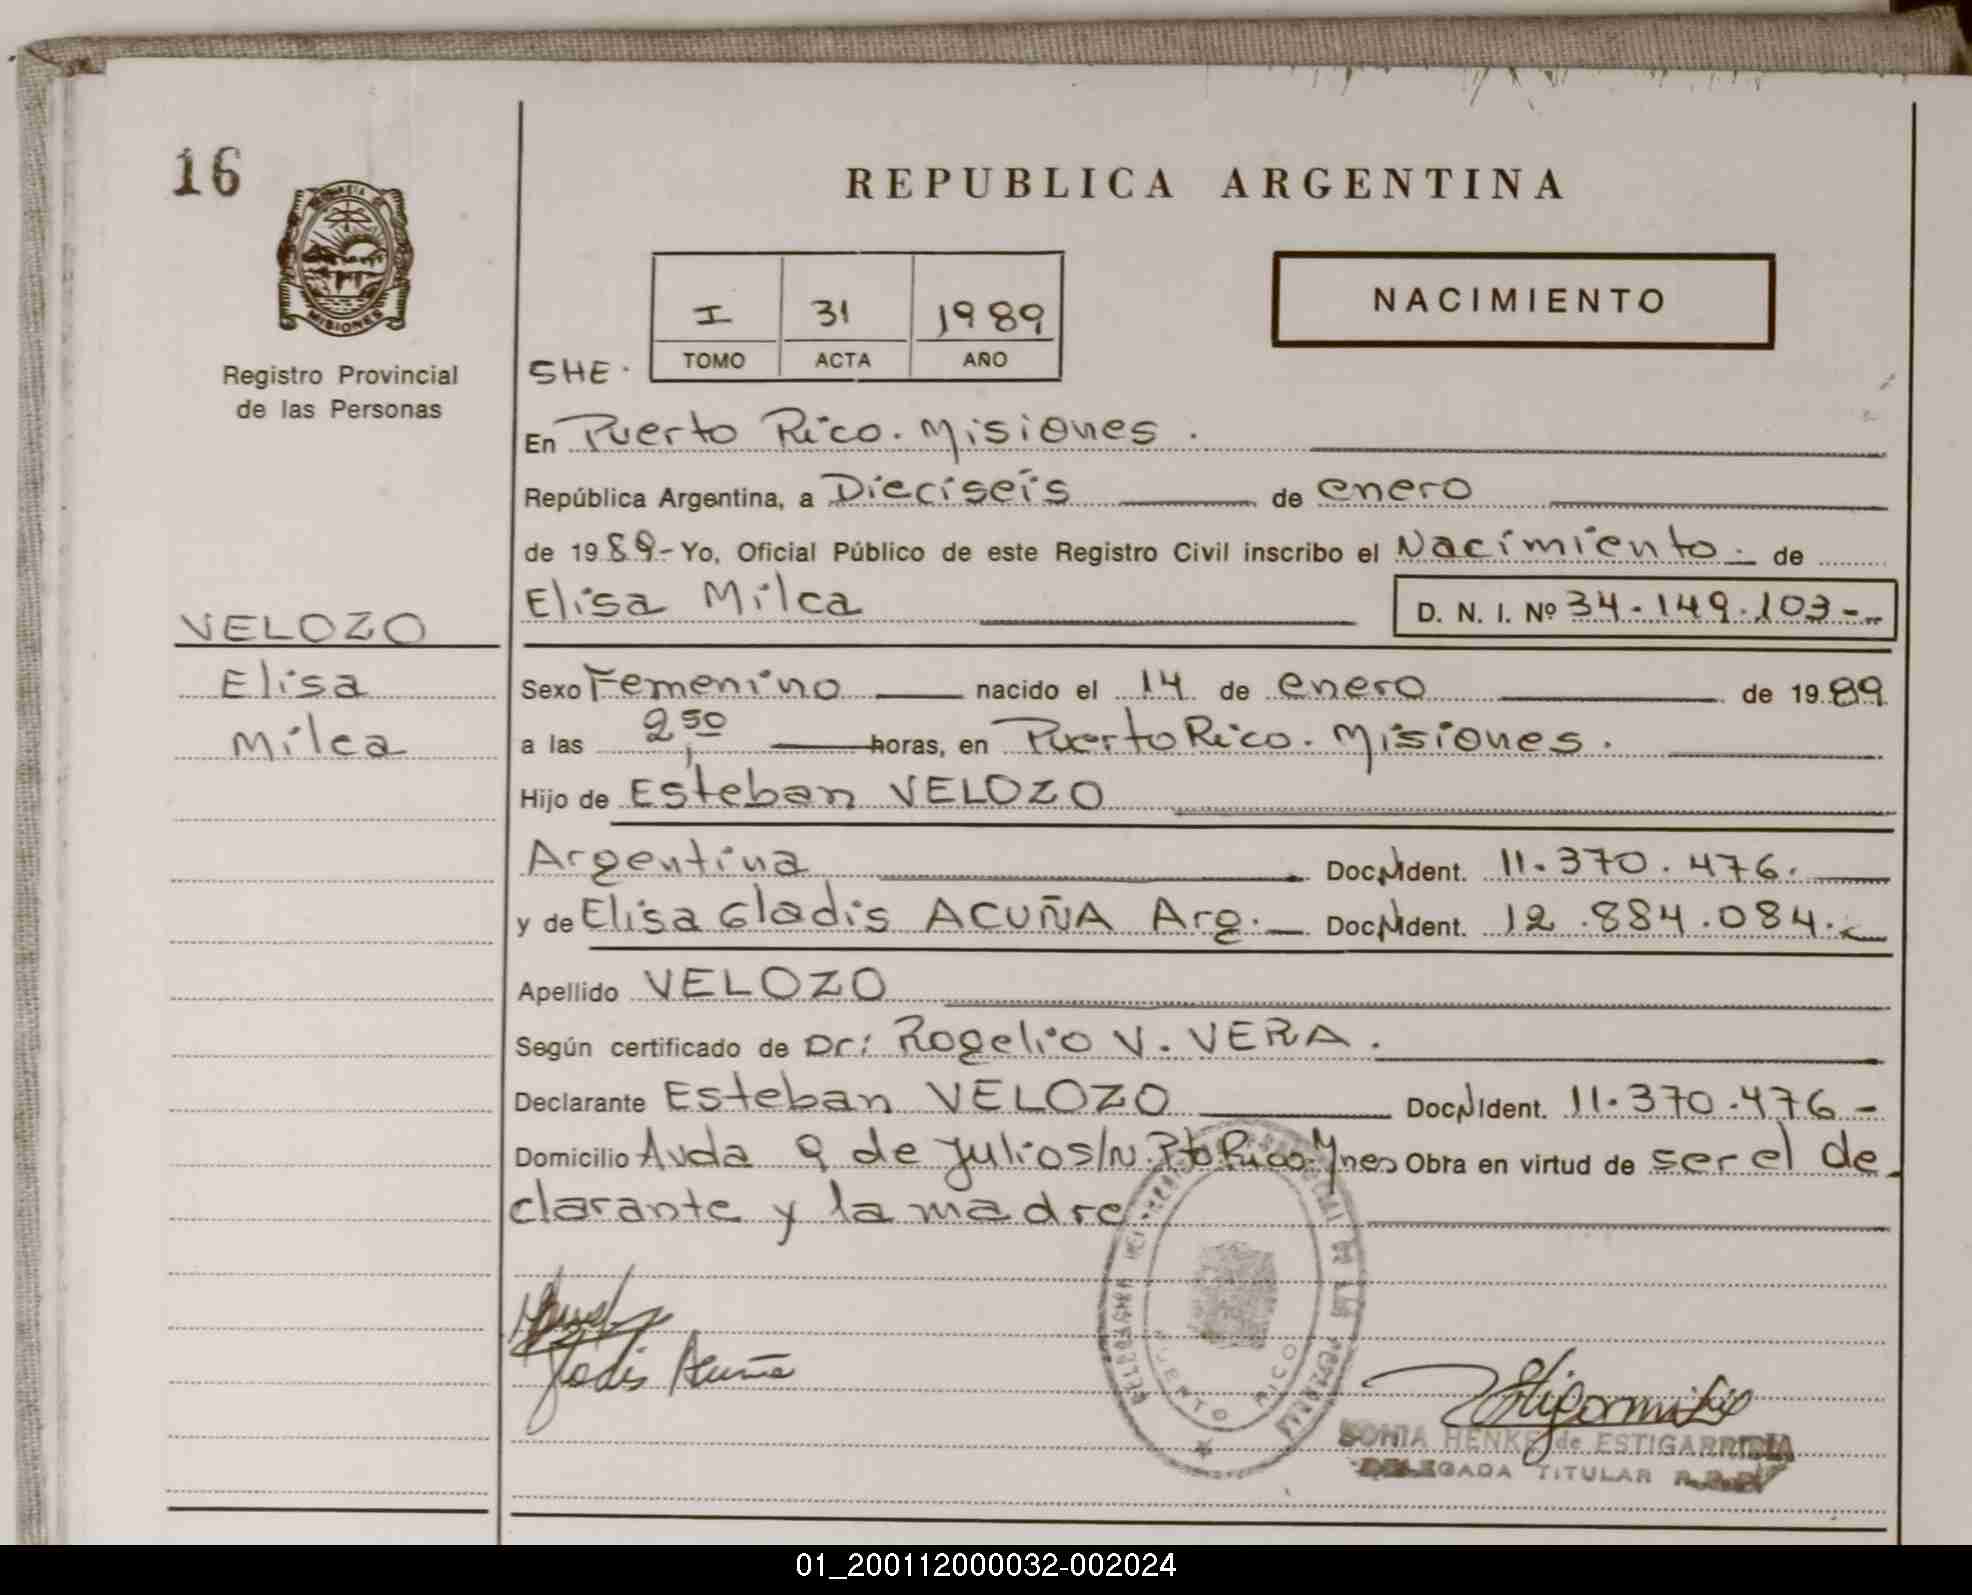 16
REPUBLICA ARGENTINA
MISIONES
Registro Provincial
de las Personas
I 31 1989
TOMO ACTA AÑO
NACIMIENTO
SHE.
En Puerto Rico. Misiones.
República Argentina, a Dieciseis de enero
de 1989- Yo, Oficial Público de este Registro Civil inscribo el Nacimiento. de
Elisa Milca D. N. I. Nº 34.149.103-
VELOZO
Elisa
Milca
Sexo Femenino nacido el 14 de enero de 1989
a las 2,50 horas, en Puerto Rico. Misiones.
Hijo de Esteban VELOZO
Argentina Doc. N. Ident. 11.370.476.
y de Elisa Gladis ACUÑA Arg. Doc. N. Ident. 12.884.084.
Apellido VELOZO
Según certificado de Dr: Rogelio V. VERA.
Declarante Esteban VELOZO Doc. N. Ident. 11.370.476-
Domicilio Avda 9 de Julio s/n Pto Rico. Mnes Obra en virtud de ser el de
clarante y la madre.
PUERTO RICO
SONIA HENKE de ESTIGARRIBIA
DELEGADA TITULAR
01_200112000032-002024